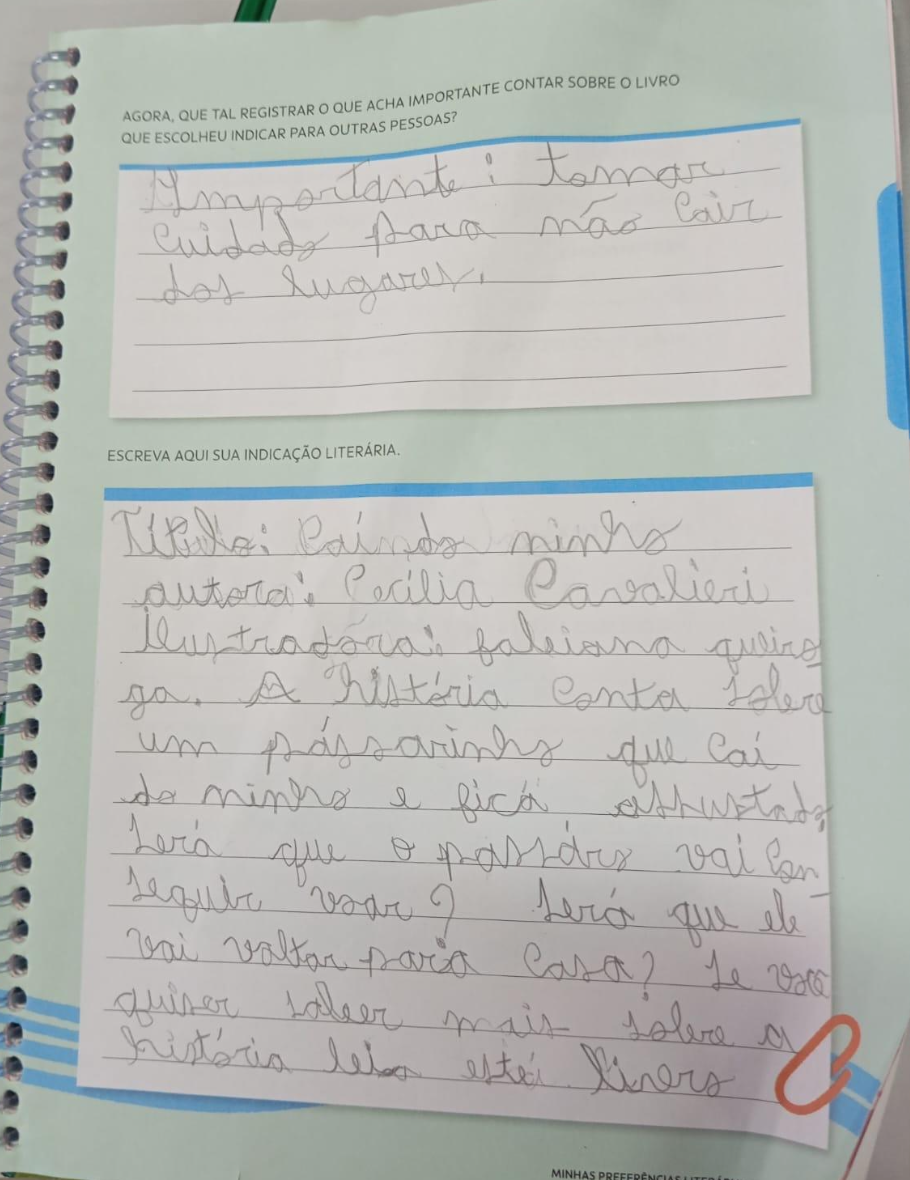 AGORA, QUE TAL REGISTRAR O QUE ACHA IMPORTANTE CONTAR SOBRE O LIVRO
QUE ESCOLHEU INDICAR PARA OUTRAS PESSOAS?
Importante: tomar
cuidado para não cair
dos lugares.
ESCREVA AQUI SUA INDICAÇÃO LITERÁRIA.
Título: Caindo ninho
autora: Cecília Cavalieri
ilustradóra: fabiana queiro
ga. A história conta sobre
um pássarinho que cai
do ninho e ficá asshustado,
será que o passáro vai con-
seguir voar? será que ele
vai voltar pará casa? se você
quiser saber mais sobre a
história leia esté livero
MINHAS PREFERÊNCIAS